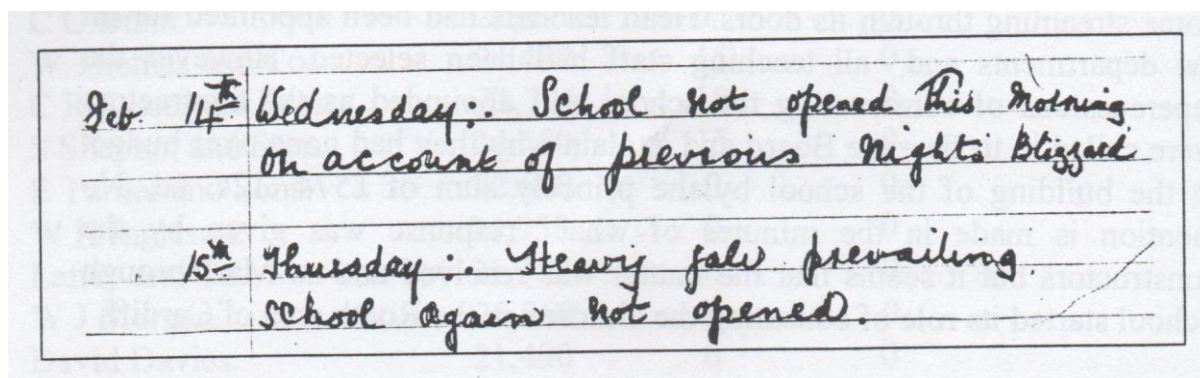 Feb. 14th Wednesday. School not opened this Morning
on account of previous Nights Blizzard.
15th Thursday. Heavy gale prevailing
School again not opened